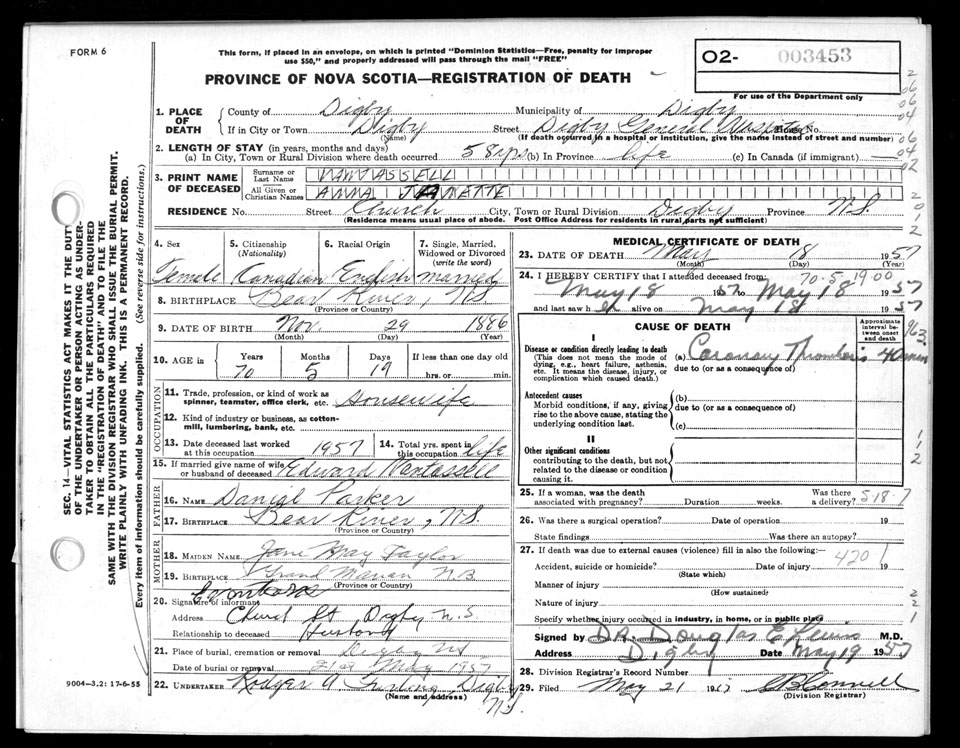 FORM 6
This form, if placed in an envelope, on which is printed "Dominion Statistics—Free, penalty for improper
use $50," and properly addressed will pass through the mail "FREE"
PROVINCE OF NOVA SCOTIA—REGISTRATION OF DEATH
O2- 003453
For use of the Department only
SEC. 14—VITAL STATISTICS ACT MAKES IT THE DUTY
OF THE UNDERTAKER OR PERSON ACTING AS UNDER-
TAKER TO OBTAIN ALL THE PARTICULARS REQUIRED
IN THE "REGISTRATION OF DEATH" AND TO FILE THE
SAME WITH THE DIVISION REGISTRAR WHO SHALL ISSUE THE BURIAL PERMIT.
WRITE PLAINLY WITH UNFADING INK. THIS IS A PERMANENT RECORD.
Every item of information should be carefully supplied. (See reverse side for instructions.)
1. PLACE OF DEATH
County of Digby Municipality of Digby
If in City or Town Digby Street Digby General Hospital House No.
(Name) (If death occurred in a hospital or institution, give the name instead of street and number)
2. LENGTH OF STAY (in years, months and days)
(a) In City, Town or Rural Division where death occurred 58 yrs (b) In Province life (c) In Canada (if immigrant) —
3. PRINT NAME OF DECEASED
Surname or Last Name VANTASSELL
All Given or Christian Names ANNA JANETTE
RESIDENCE No. Street Church City, Town or Rural Division Digby Province N.S.
(Residence means usual place of abode. Post Office Address for residents in rural parts not sufficient)
4. Sex Female
5. Citizenship (Nationality) Canadian
6. Racial Origin English
7. Single, Married, Widowed or Divorced (write the word) married
8. BIRTHPLACE Bear River, N.S.
(Province or Country)
9. DATE OF BIRTH Nov. 29 1886
(Month) (Day) (Year)
10. AGE in Years 70 Months 5 Days 19 If less than one day old
hrs. or min.
OCCUPATION
11. Trade, profession, or kind of work as spinner, teamster, office clerk, etc. Housewife
12. Kind of industry or business, as cotton-mill, lumbering, bank, etc.
13. Date deceased last worked at this occupation 1957
14. Total yrs. spent in this occupation life
15. If married give name of wife or husband of deceased Edward Vantassell
FATHER
16. NAME Daniel Parker
17. BIRTHPLACE Bear River, N.S.
(Province or Country)
MOTHER
18. MAIDEN NAME Jane Taylor
19. BIRTHPLACE Grand Manan N.B.
(Province or Country)
20. Signature of informant
Address Church St Digby N.S.
Relationship to deceased Husband
21. Place of burial, cremation or removal Digby NS
Date of burial or removal 21st May 1957
22. UNDERTAKER Digby
N.S.
(Name and address)
9004—3.2: 17-6-55
MEDICAL CERTIFICATE OF DEATH
23. DATE OF DEATH May 18 1957
(Month) (Day) (Year)
70-5-19-00
24. I HEREBY CERTIFY that I attended deceased from:
May 18 1957 to May 18 1957
and last saw her alive on May 18 1957
CAUSE OF DEATH
Approximate interval between onset and death
I
Disease or condition directly leading to death
(This does not mean the mode of dying, e.g., heart failure, asthenia, etc. It means the disease, injury, or complication which caused death.)
(a) Coronary Thrombosis 40 min
due to (or as a consequence of)
Antecedent causes
Morbid conditions, if any, giving rise to the above cause, stating the underlying condition last.
(b)
due to (or as a consequence of)
(c)
II
Other significant conditions
contributing to the death, but not related to the disease or condition causing it.
25. If a woman, was the death associated with pregnancy? Duration weeks. Was there a delivery? 5-18-7
26. Was there a surgical operation? Date of operation 19
State findings Was there an autopsy?
27. If death was due to external causes (violence) fill in also the following:—
Accident, suicide or homicide? Date of injury 420 1 19
(State which)
Manner of injury
(How sustained)
Nature of injury
Specify whether injury occurred in industry, in home, or in public place
Signed by DR. Douglas E Lewis M.D.
Address Digby Date May 19 1957
28. Division Registrar's Record Number
29. Filed May 21 1957
(Division Registrar)